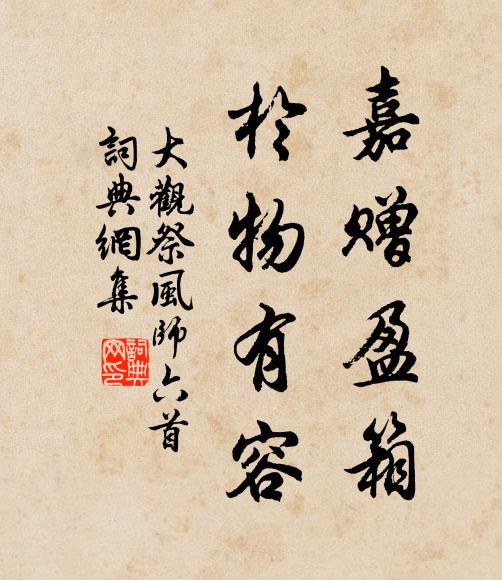 嘉贈盈箱
於物有容
大觀祭風師六首
詞典網集
詞典網印